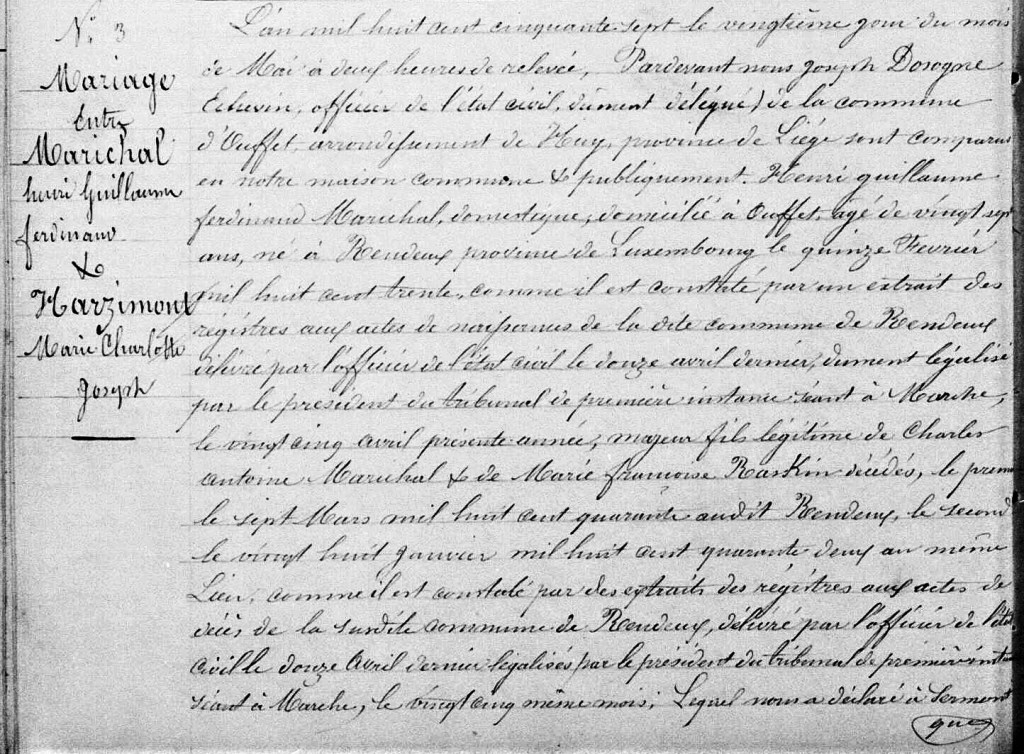 N.° 3
Mariage
Entre
Marichal
henri Guillaume
ferdinand
&
Harzimont
Marie Charlotte
Joseph
L'an mil huit cent cinquante sept le vingtième jour du mois
de Mai à deux heures de relevée, Pardevant nous Joseph Dosogne
Echevin, officier de l'état civil, dûment délégué, de la commune
d'Ouffet, arrondissement de Huy, province de Liége sont comparus
en notre maison commune & publiquement. Henri guillaume
ferdinand Marichal, domestique, domicilié à Ouffet, agé de vingt sept
ans, né à Rendeux province de Luxembourg le quinze Fevrier
mil huit cent trente, comme il est constaté par un extrait des
régistres aux actes de naissances de la dite commune de Rendeux
délivré par l'officier de l'état civil le douze avril dernier, dument légalisé
par le président du tribunal de première instance séant à Marche,
le vingt cinq avril présente année, majeur fils légitime de Charles
antoine Marichal & de Marie françoise Raskin décédés, le premier
le sept Mars mil huit cent quarante audit Rendeux, le second
le vingt huit Janvier mil huit cent quarante deux au même
Lieu, comme il est constaté par des extraits des régistres aux actes de
décès de la susdite commune de Rendeux, délivré par l'officier de l'état
civil le douze Avril dernier légalisés par le président du tribunal de première instance
séant à Marche, le vingt cinq même mois, Lequel nous a déclaré à serment
que